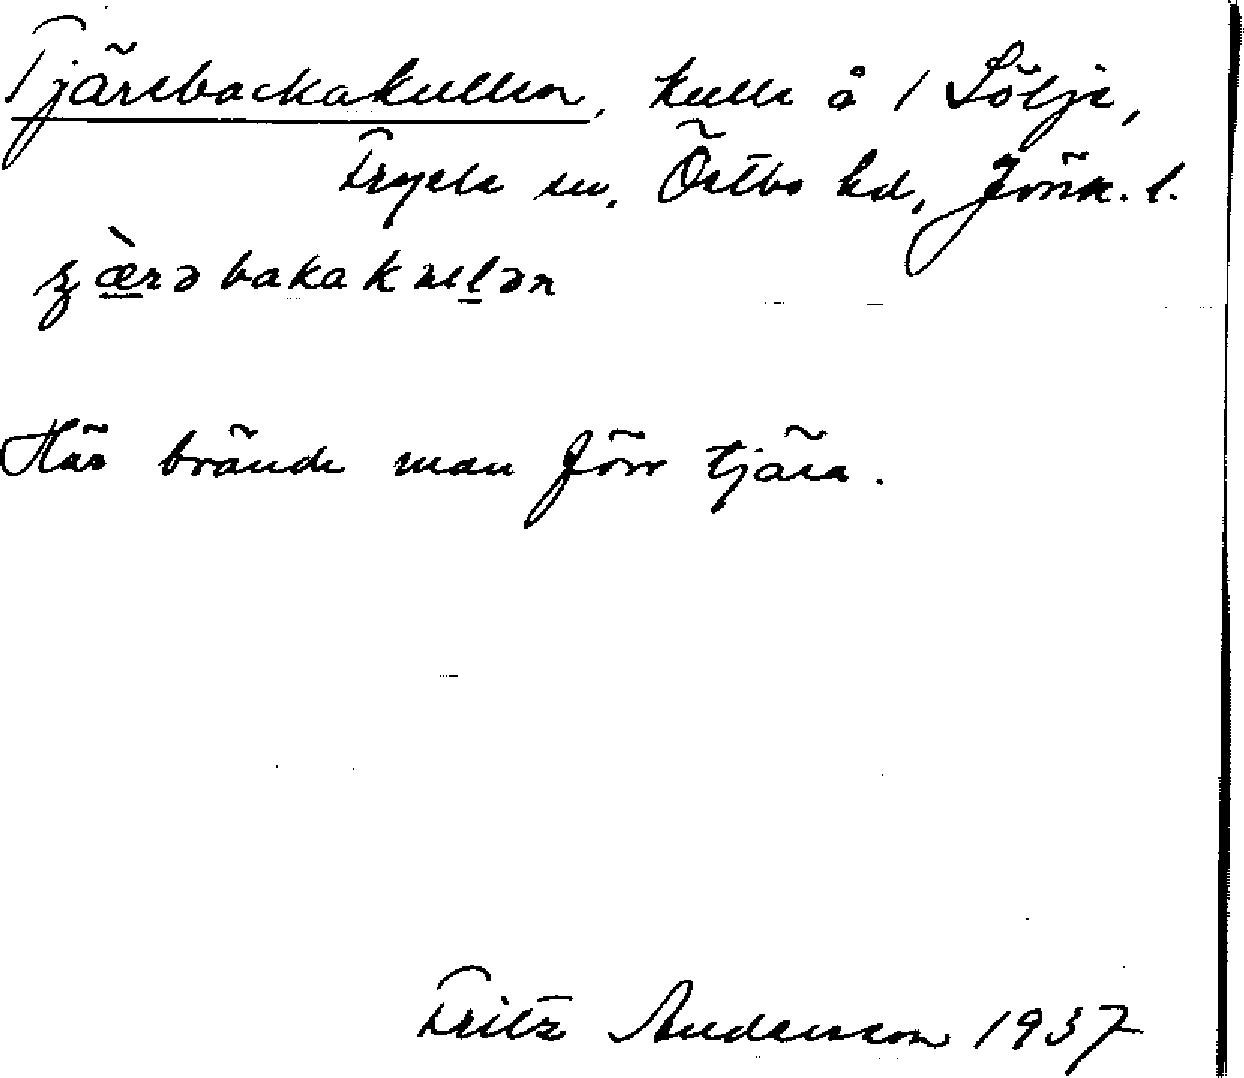 Tjärebackakullen, kulle å 1 Sölje,
Fryele sn, Östbo hd, Jönk. l.
ʒæ̀rəbakakulən
Här brände man förr tjära.
Fritz Andersson 1937